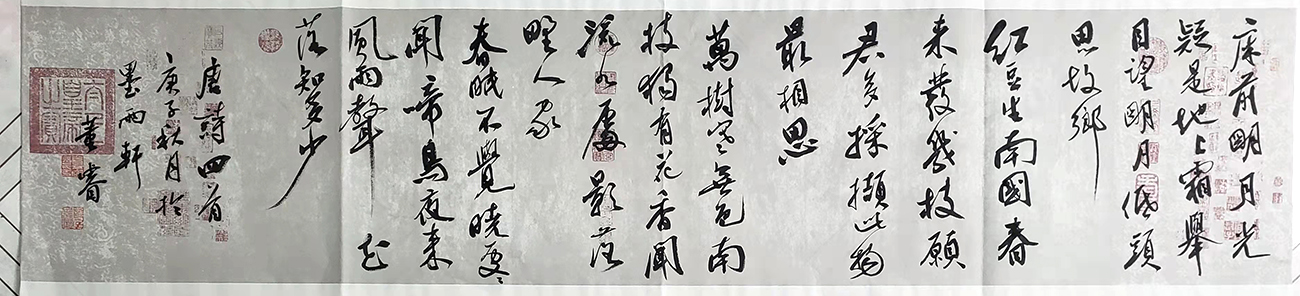 床前明月光
疑是地上霜舉
目望明月低頭
思故鄉
紅豆生南國春
来發幾枝願
君多採擷此物
最相思
萬樹寒無色南
枝獨有花香聞
流水處影落
野人家
春眠不覺曉處々
聞啼鳥夜来
風雨聲花
落知多少
唐詩四首
庚子秋月於
墨雨軒
董睿